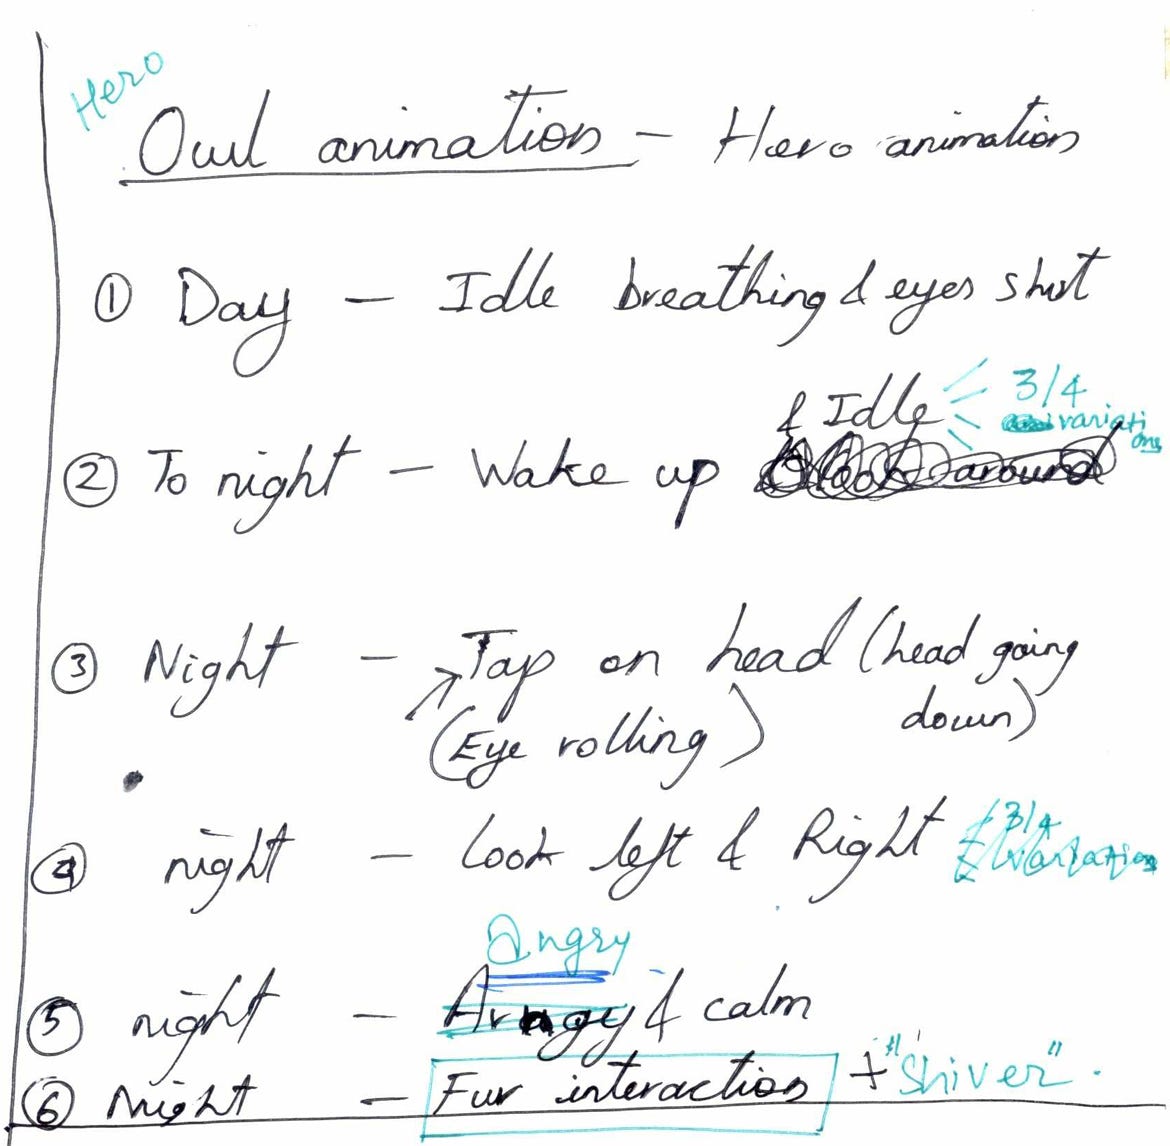 Hero
Owl animation - Hero animation
① Day - Idle breathing & eyes shut
& Idle 3/4
variations
② To night - Wake up look around
③ Night - Tap on head (head going
(Eye rolling) down)
④ night - Look left & Right 3/4
variation
Angry
⑤ night - & calm
⑥ Night - Fur interaction + "Shiver".